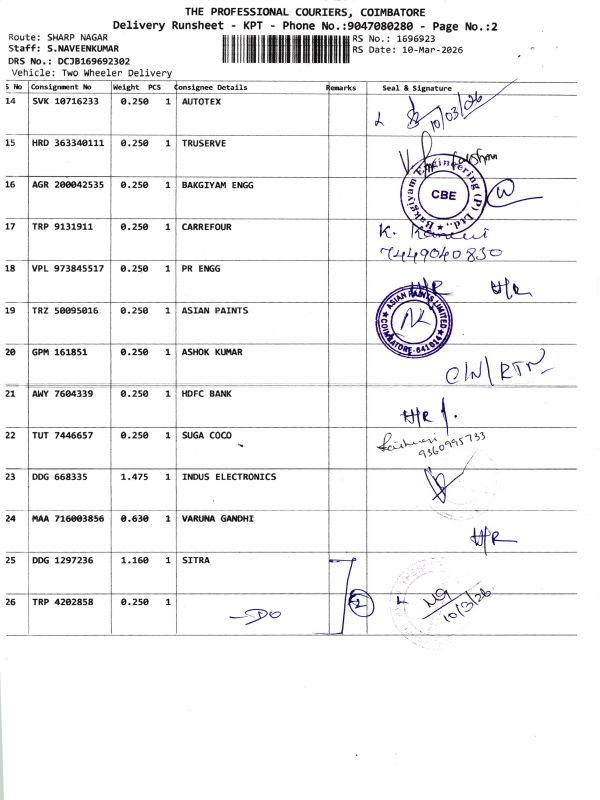 THE PROFESSIONAL COURIERS, COIMBATORE
Delivery Runsheet - KPT - Phone No.:9047080280 - Page No.:2
Route: SHARP NAGAR
RS No.: 1696923
Staff: S.NAVEENKUMAR
RS Date: 10-Mar-2026
DRS No.: DCJB169692302
Vehicle: Two Wheeler Delivery
S No Consignment No Weight PCS Consignee Details Remarks Seal & Signature
14 SVK 10716233 0.250 1 AUTOTEX
10/03/26
15 HRD 363340111 0.250 1 TRUSERVE
16 AGR 200042535 0.250 1 BAKGIYAM ENGG
Bakgiyam Engineering (P) Ltd.,
CBE
17 TRP 9131911 0.250 1 CARREFOUR
K.
7449040830
18 VPL 973845517 0.250 1 PR ENGG
H/R H/R
19 TRZ 50095016 0.250 1 ASIAN PAINTS
ASIAN PAINTS LIMITED
COIMBATORE-641014
20 GPM 161851 0.250 1 ASHOK KUMAR
C/N/RTN
21 AWY 7604339 0.250 1 HDFC BANK
H/R
22 TUT 7446657 0.250 1 SUGA COCO
9360995733
23 DDG 668335 1.475 1 INDUS ELECTRONICS
24 MAA 716003856 0.630 1 VARUNA GANDHI
H/R
25 DDG 1297236 1.160 1 SITRA
26 TRP 4202858 0.250 1
DO
2
10/3/26